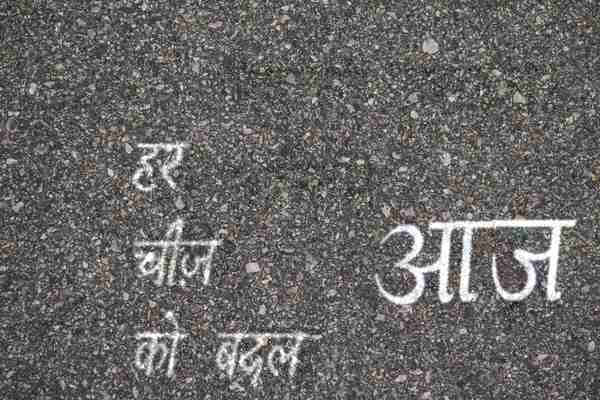 हर
चीज़
को बदल
आज